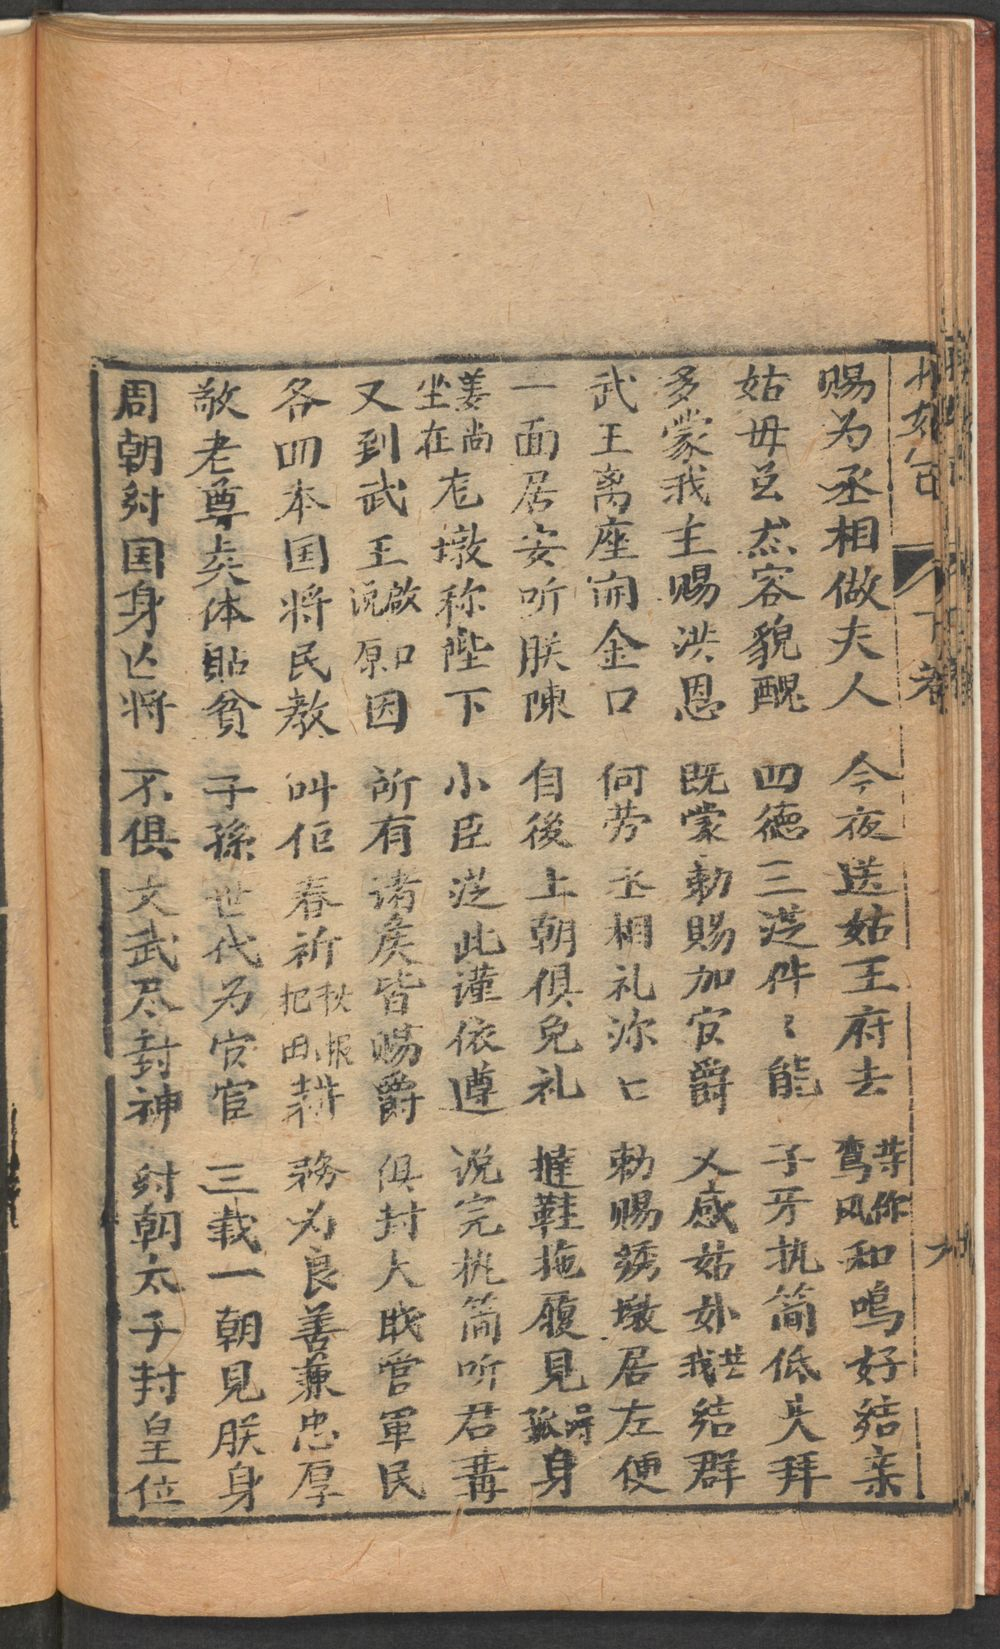 下卷
九
赐为丞相做夫人 今夜送姑王府去 共你鸾凤和鸣好结亲
姑毋皃㤗容貌醜 四德三従件〻能 子牙执简低头拜
多蒙我主赐洪恩 既蒙勅賜加官爵 又感姑外共我结群
武王离座䦕金口 何劳丞相礼弥〻 勅赐绣墩居左便
一面居安听朕陳 自後上朝俱免礼 撻鞋拖履見孤身
姜尚坐在尨墩称陛下 小臣従此谨依遵 说完执简听君講
又到武王啟口说原因 所有诸矦皆赐爵 俱封大戝管軍民
各四本国将民教 叫佢春祈秋报把田耕 務为良善兼忠厚
敬老尊矣体貼貧 子孫世代为官宦 三载一朝見朕身
周朝紂国身亡将 不俱文武尽封神 紂朝太子封皇位